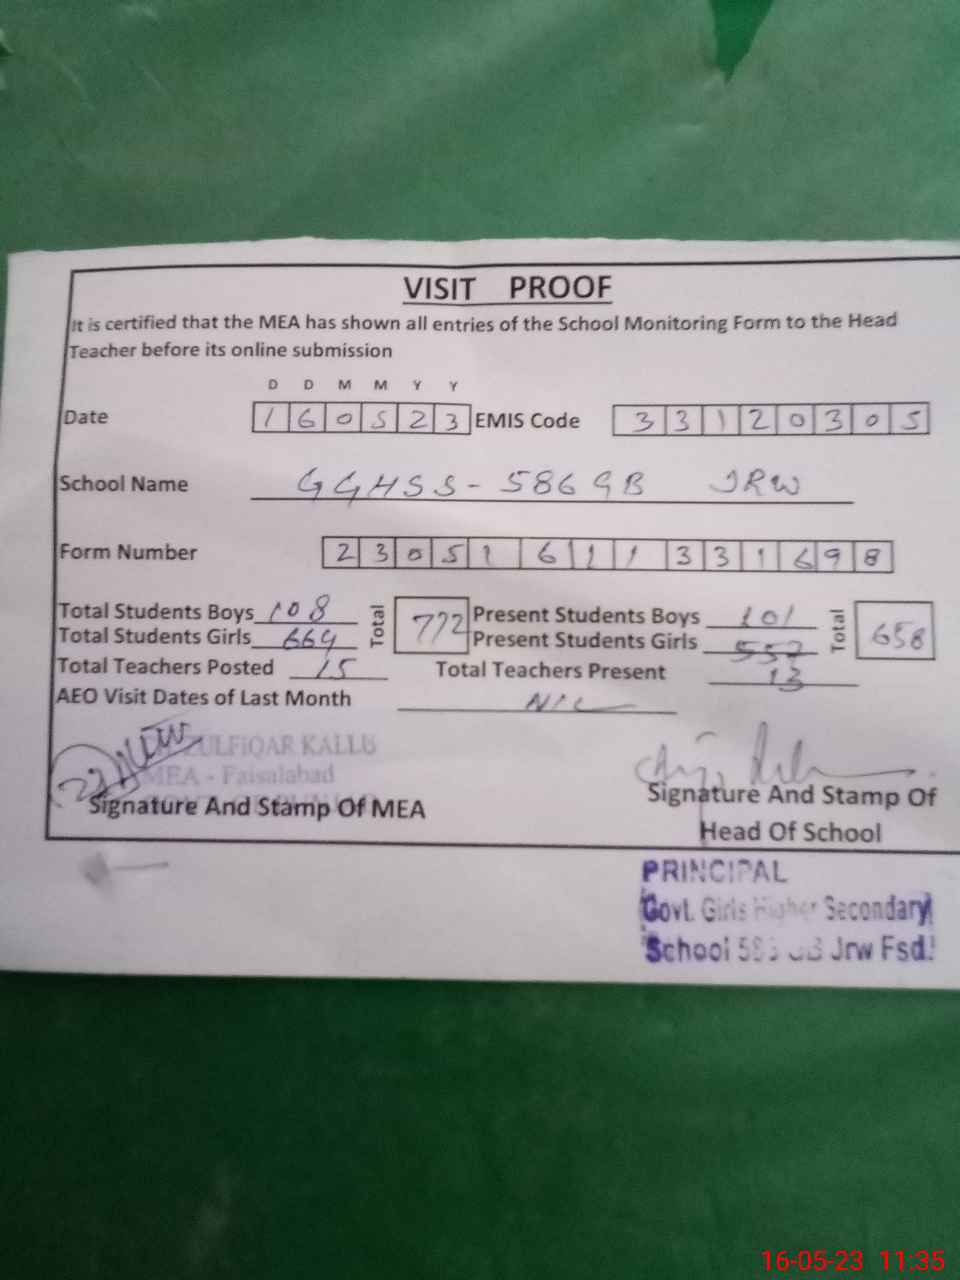 VISIT PROOF
It is certified that the MEA has shown all entries of the School Monitoring Form to the Head
Teacher before its online submission
D D M M Y Y
Date 1 6 0 5 2 3 EMIS Code 3 3 1 2 0 3 0 5
School Name GGHSS-586 GB JRW
Form Number 2 3 0 5 1 6 1 1 3 3 1 6 9 8
Total Students Boys 108 Total 772 Present Students Boys 101 Total 658
Total Students Girls 664 Present Students Girls 557
Total Teachers Posted 15 Total Teachers Present 13
AEO Visit Dates of Last Month NIL
ZULFIQAR KALLU
MEA - Faisalabad
Signature And Stamp Of MEA
Signature And Stamp Of
Head Of School
PRINCIPAL
Govt. Girls Higher Secondary
School Jrw Fsd.
16-05-23 11:35